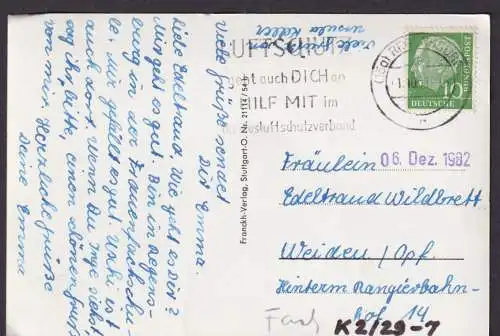 Viele Grüße sendet
Dir Emma.
Liebe Edeltraud. Wie geht es Dir?
Mir geht es gut. Bin in Regens-
burg in der Frauenfachschu-
le. Mir gefällt es gut. Uschi ist
auch dort. Wenn Du Inge siehst
sag ihr, bitte, einen schönen Gruß
von mir. Herzliche Grüße
Deine Emma
Viele Grüße
von
Ursula Käller
LUFTSCHUTZ
geht auch DICH an
HILF MIT im
Bundesluftschutzverband
DEUTSCHE BUNDESPOST
10
Franckh-Verlag, Stuttgart-O. Nr. 21114/Sch
Fräulein
06. Dez. 1982
Edeltraud Wildbrett
Weiden / Opf.
Hinterm Rangierbahn-
hof 14
K2/29-7